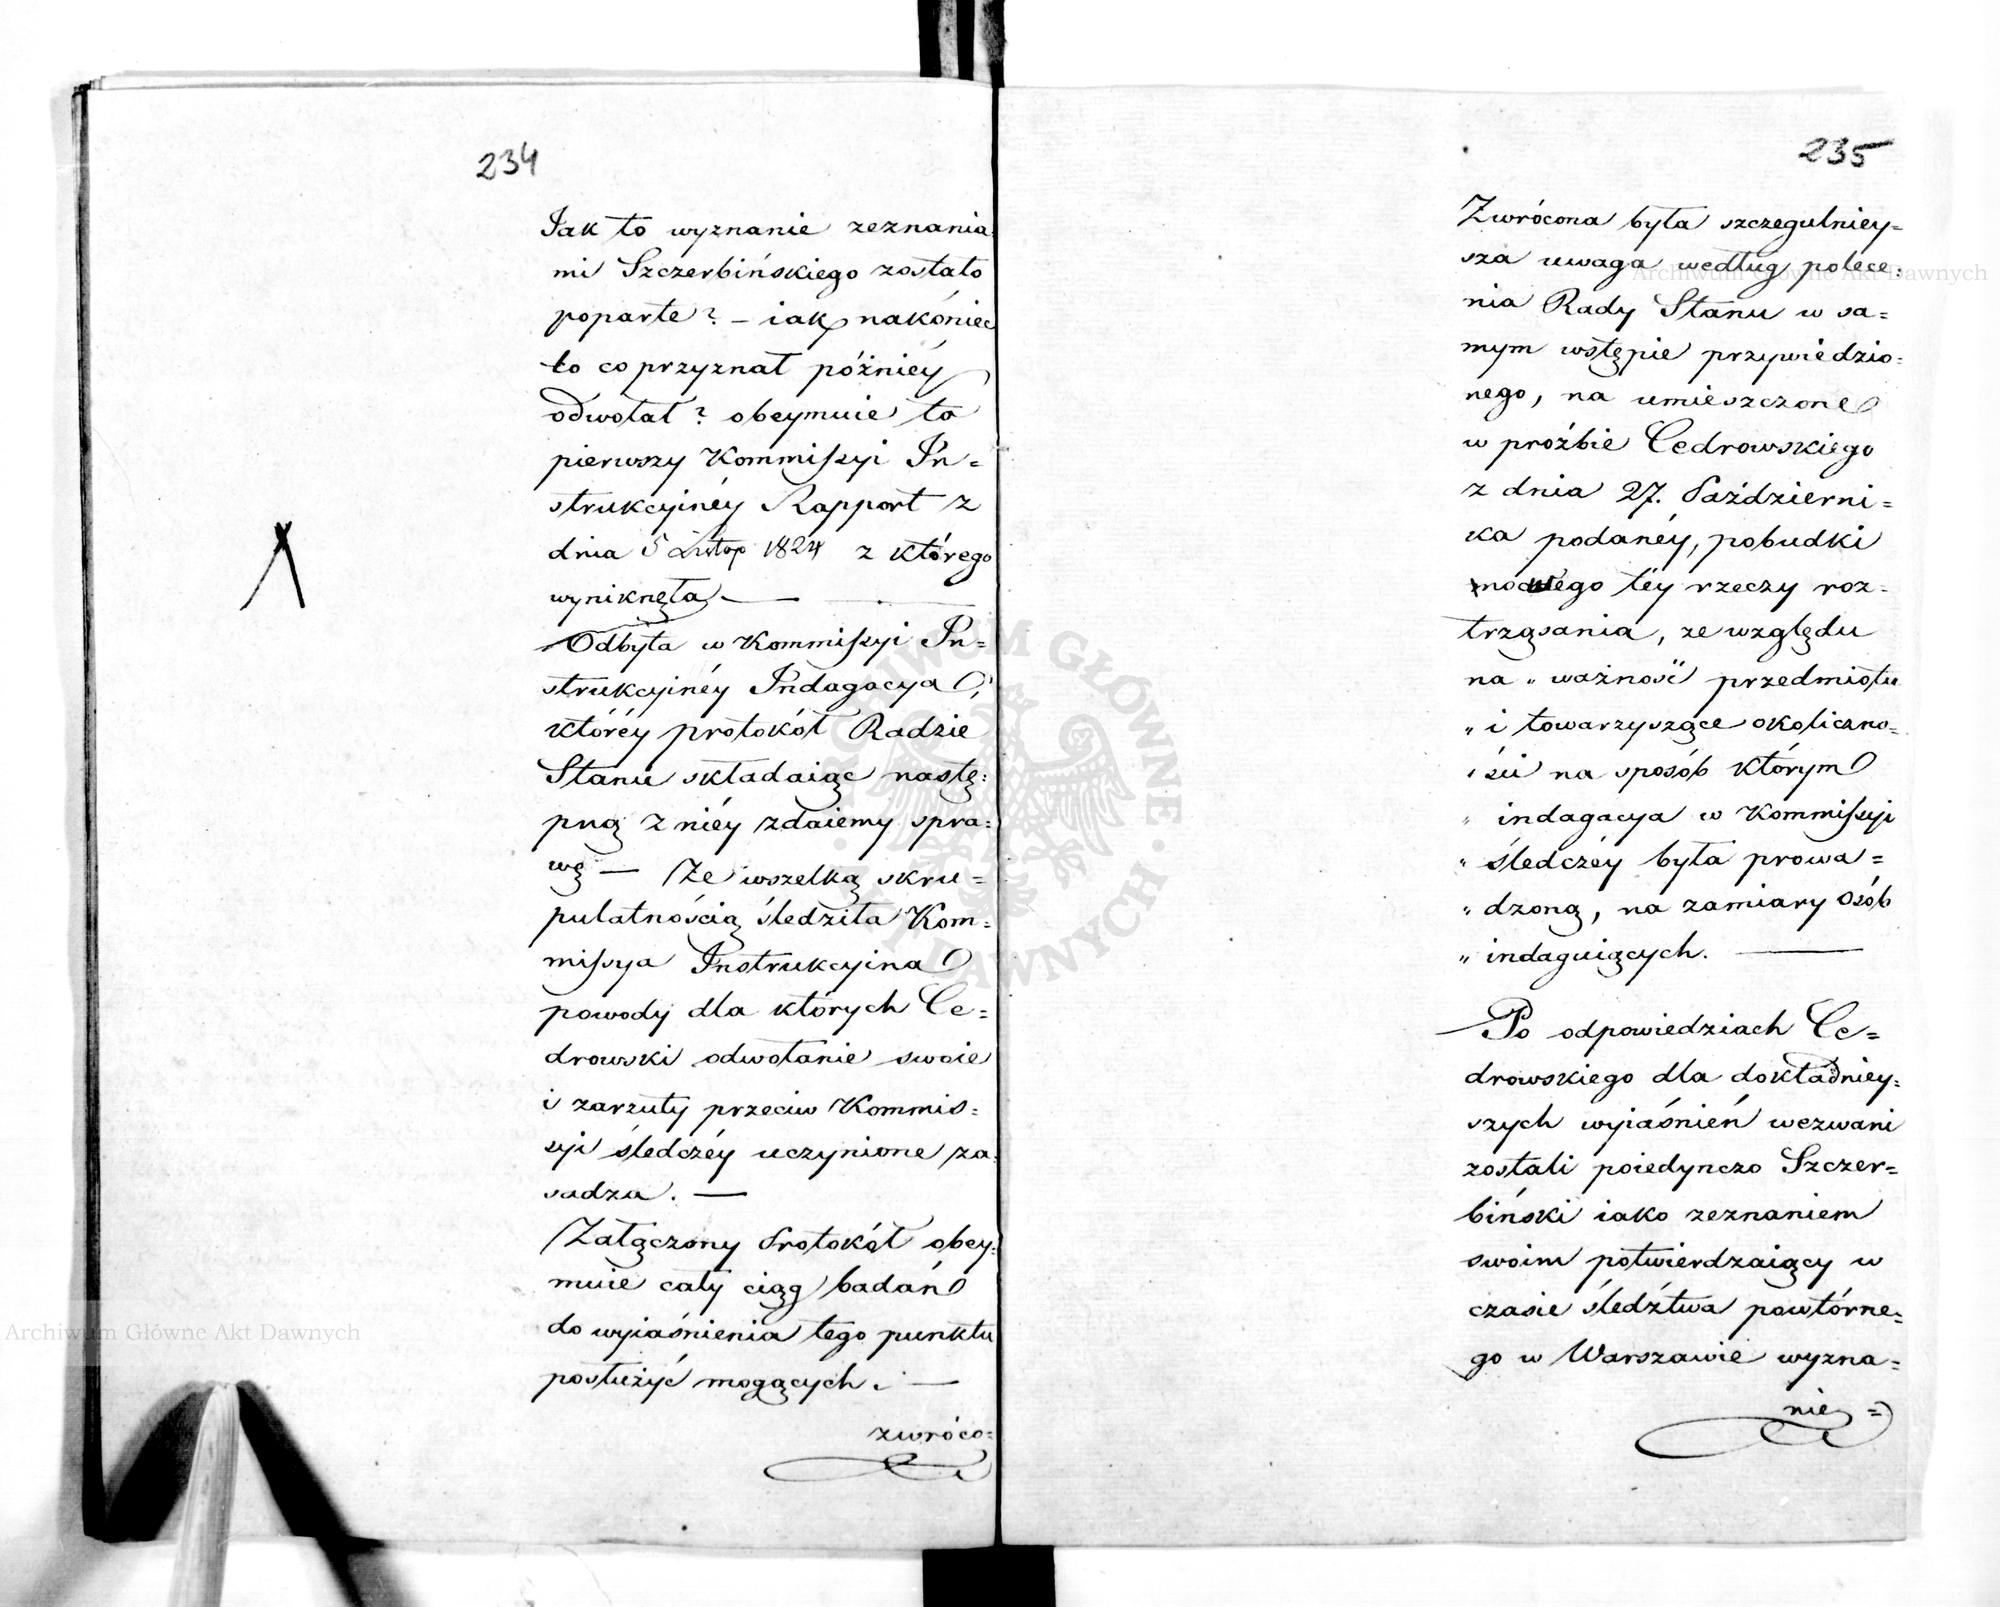 234
Jak to wyznanie zeznania:
mi Szczerbińskiego zostało
poparte? – iak nakóniec
to co przyznał późniéy
odwołał? obeymuie to
pierwszy Kommissyi In=
strukcyinéy Rapport z
dnia 5 Listop 1824 z którego
wyniknęła —
Odbyta w Kommissyi In=
strukcyinéy Indagacya,
któréy protokół Radzie
Stanu składaiąc nastę:
pną z niéy zdaiemy spra:
wę — Ze wszelką skru=
pulatnością śledziła Kom=
missya Instrukcyina
powody dla których Ce=
drowski odwołanie swoie
i zarzuty przeciw Kommis=
syi śledczéy uczynione za:
sadza. —
Załączony Protokół obey:
muie cały ciąg badań
do wyiaśnienia tego punktu
posłużyć mogących. —
zwróco=
235
Zwrócona była szczegulniey=
sza uwaga według polece:
nia Rady Stanu w sa=
mym wstępie przywiedzio:
nego, na umieszczone
w proźbie Cedrowskiego
z dnia 27. Październi=
ka podanéy, pobudki
nowego téy rzeczy roz=
trząsania, ze względu
na „ ważność przedmiotu
„ i towarzyszące okoliczno=
„ ści na sposób którym
„ indagacya w Kommissyi
„ śledczéy była prowa=
„ dzoną, na zamiary osób
„ indaguiących. —
Po odpowiedziach Ce=
drowskiego dla dokładniey:
szych wyiaśnień wezwani
zostali poiedynczo Szczer=
biński iako zeznaniem
swoim potwierdzaiący w
czasie śledztwa powtórne=
go w Warszawie wyzna=
nie =
Archiwum Główne Akt Dawnych
Archiwum Główne Akt Dawnych
ARCHIWUM GŁÓWNE AKT DAWNYCH